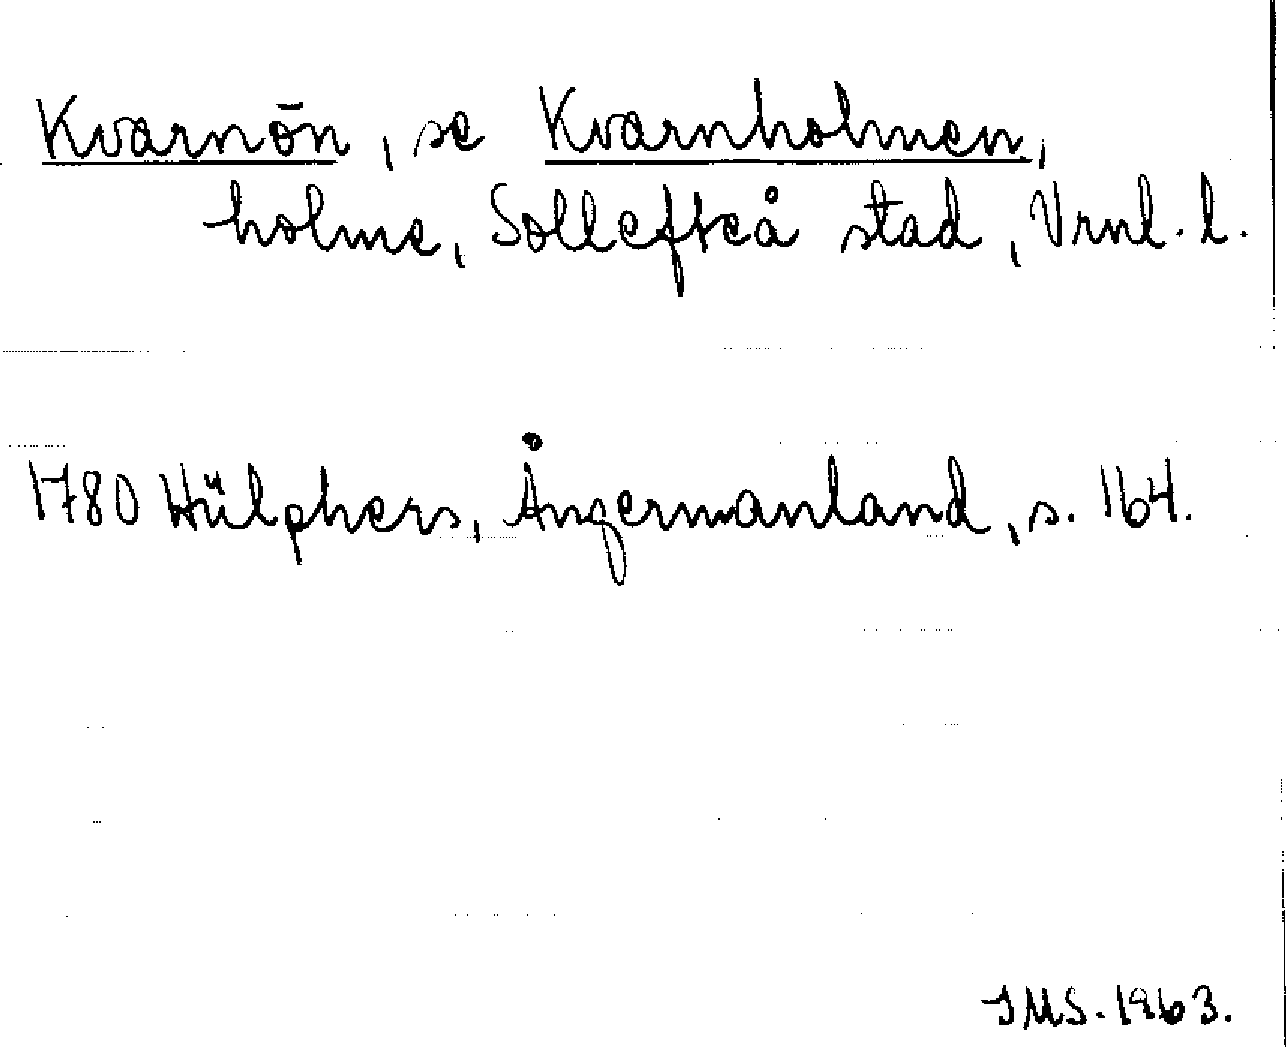 Kvarnön, se Kvarnholmen,
holme, Sollefteå stad, Vrnl. l.
1780 Hülphers, Ångermanland, s. 164.
IMS. 1963.